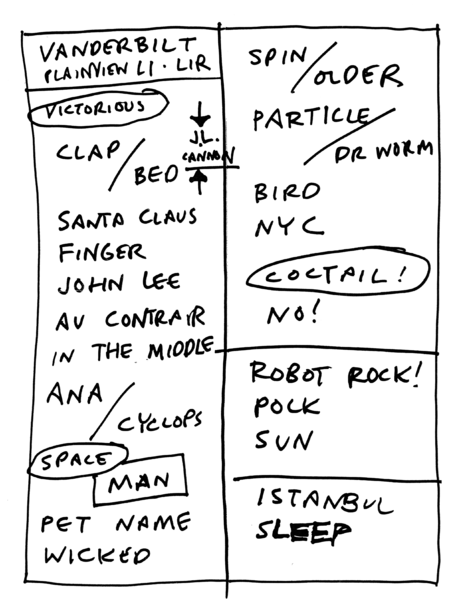 VANDERBILT
PLAINVIEN LI · LIR
VICTORIOUS
CLAP /
BED
J.L.
CANNON
SANTA CLAUS
FINGER
JOHN LEE
AU CONTRAIR
IN THE MIDDLE
ANA /
CYCLOPS
SPACE
MAN
PET NAME
WICKED
SPIN /
OLDER
PARTICLE /
DR WORM
BIRD
NYC
COCTAIL!
NO!
ROBOT ROCK!
POCK
SUN
ISTANBUL
SLEEP